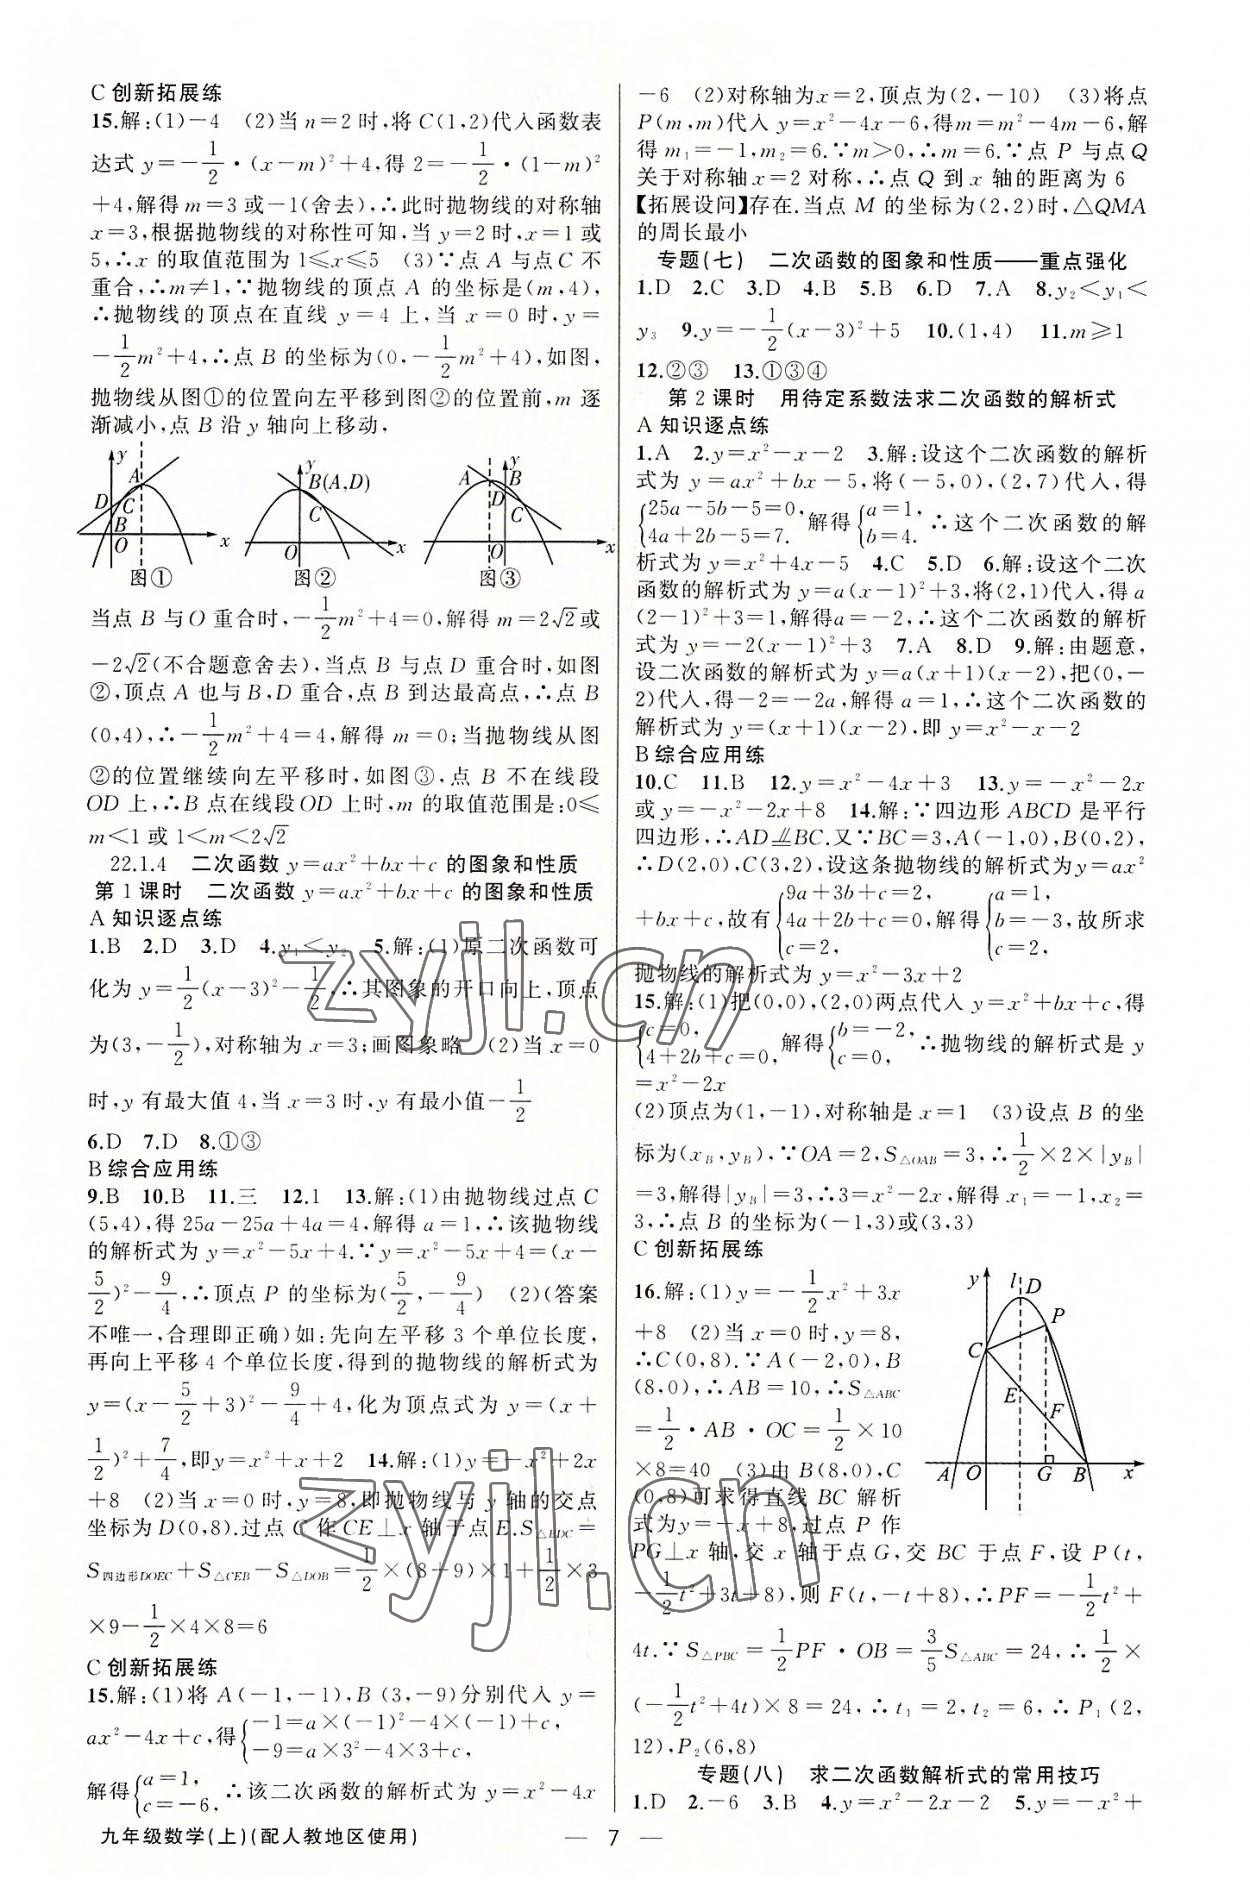 C 创新拓展练
15.解:(1)-4 (2)当 n=2 时,将 C(1,2)代入函数表
达式 y=-1/2·(x-m)²+4,得 2=-1/2·(1-m)²
+4,解得 m=3 或-1(舍去),∴此时抛物线的对称轴
x=3,根据抛物线的对称性可知,当 y=2 时,x=1 或
5,∴x 的取值范围为 1≤x≤5 (3)∵点 A 与点 C 不
重合,∴m≠1,∵抛物线的顶点 A 的坐标是(m,4),
∴抛物线的顶点在直线 y=4 上,当 x=0 时,y=
-1/2m²+4,∴点 B 的坐标为(0,-1/2m²+4),如图,
抛物线从图①的位置向左平移到图②的位置前,m 逐
渐减小,点 B 沿 y 轴向上移动,
y A D C B O x 图①
y B(A,D) C O x 图②
y A B D C O x 图③
当点 B 与 O 重合时,-1/2m²+4=0,解得 m=2√2或
-2√2(不合题意舍去),当点 B 与点 D 重合时,如图
②,顶点 A 也与 B,D 重合,点 B 到达最高点,∴点 B
(0,4),∴-1/2m²+4=4,解得 m=0;当抛物线从图
②的位置继续向左平移时,如图③,点 B 不在线段
OD 上,∴B 点在线段 OD 上时,m 的取值范围是:0≤
m<1 或 1<m<2√2
22.1.4 二次函数 y=ax²+bx+c 的图象和性质
第 1 课时 二次函数 y=ax²+bx+c 的图象和性质
A 知识逐点练
1.B 2.D 3.D 4.y₁<y₂ 5.解:(1)原二次函数可
化为 y=1/2(x-3)²-1/2,∴其图象的开口向上,顶点
为(3,-1/2),对称轴为 x=3;画图象略 (2)当 x=0
时,y 有最大值 4,当 x=3 时,y 有最小值-1/2
6.D 7.D 8.①③
B 综合应用练
9.B 10.B 11.三 12.1 13.解:(1)由抛物线过点 C
(5,4),得 25a-25a+4a=4,解得 a=1,∴该抛物线
的解析式为 y=x²-5x+4.∵y=x²-5x+4=(x-
5/2)²-9/4,∴顶点 P 的坐标为(5/2,-9/4) (2)(答案
不唯一,合理即正确)如:先向左平移 3 个单位长度,
再向上平移 4 个单位长度,得到的抛物线的解析式为
y=(x-5/2+3)²-9/4+4,化为顶点式为 y=(x+
1/2)²+7/4,即y=x²+x+2 14.解:(1)y=-x²+2x
+8 (2)当 x=0 时,y=8,即抛物线与 y 轴的交点
坐标为 D(0,8).过点 C 作 CE⊥x 轴于点 E.S△BDC=
S四边形DOEC+S△CEB-S△DOB=1/2×(8+9)×1+1/2×3
×9-1/2×4×8=6
C 创新拓展练
15.解:(1)将 A(-1,-1),B (3,-9)分别代入 y=
ax²-4x+c,得{-1=a×(-1)²-4×(-1)+c,
-9=a×3²-4×3+c,
解得{a=1, c=-6, ∴该二次函数的解析式为 y=x²-4x
-6 (2)对称轴为 x=2,顶点为(2,-10) (3)将点
P(m,m)代入 y=x²-4x-6,得m=m²-4m-6,解
得 m₁=-1,m₂=6.∵m>0,∴m=6.∵点 P 与点Q
关于对称轴 x=2 对称,∴点 Q 到 x 轴的距离为 6
【拓展设问】存在.当点 M 的坐标为(2,2)时,△QMA
的周长最小
专题(七) 二次函数的图象和性质——重点强化
1.D 2.C 3.D 4.B 5.B 6.D 7.A 8.y₂<y₁<
y₃ 9.y=-1/2(x-3)²+5 10.(1,4) 11.m≥1
12.②③ 13.①③④
第 2 课时 用待定系数法求二次函数的解析式
A 知识逐点练
1.A 2.y=x²-x-2 3.解:设这个二次函数的解析
式为 y=ax²+bx-5,将(-5,0),(2,7)代入,得
{25a-5b-5=0, 4a+2b-5=7. 解得{a=1, b=4. ∴这个二次函数的解
析式为 y=x²+4x-5 4.C 5.D 6.解:设这个二次
函数的解析式为 y=a(x-1)²+3,将(2,1)代入,得 a
(2-1)²+3=1,解得a=-2,∴这个二次函数的解析
式为 y=-2(x-1)²+3 7.A 8.D 9.解:由题意,
设二次函数的解析式为 y=a(x+1)(x-2),把(0,-
2)代入,得-2=-2a,解得 a=1,∴这个二次函数的
解析式为 y=(x+1)(x-2),即 y=x²-x-2
B 综合应用练
10.C 11.B 12.y=x²-4x+3 13.y=-x²-2x
或 y=-x²-2x+8 14.解:∵四边形 ABCD 是平行
四边形,∴AD⫽BC.又∵BC=3,A(-1,0),B(0,2),
∴D(2,0),C(3,2),设这条抛物线的解析式为 y=ax²
+bx+c,故有{9a+3b+c=2, 4a+2b+c=0, c=2, 解得{a=1, b=-3, c=2, 故所求
抛物线的解析式为 y=x²-3x+2
15.解:(1)把(0,0),(2,0)两点代入 y=x²+bx+c,得
{c=0, 4+2b+c=0, 解得{b=-2, c=0, ∴抛物线的解析式是 y
=x²-2x
(2)顶点为(1,-1),对称轴是 x=1 (3)设点 B 的坐
标为(xB,yB),∵OA=2,S△OAB=3,∴1/2×2×|yB|
=3,解得|yB|=3,∴3=x²-2x,解得 x₁=-1,x₂=
3,∴点 B 的坐标为(-1,3)或(3,3)
C 创新拓展练
16.解:(1)y=-1/2x²+3x
+8 (2)当 x=0 时,y=8,
∴C(0,8).∵A(-2,0),B
(8,0),∴AB=10,∴S△ABC
=1/2·AB·OC=1/2×10
×8=40 (3)由 B(8,0),C
(0,8)可求得直线 BC 解析
式为y=-x+8,过点 P 作
y l D P C E F A O G B x
PG⊥x 轴,交 x 轴于点 G,交 BC 于点 F,设 P(t,
-1/2t²+3t+8),则 F(t,-t+8),∴PF=-1/2t²+
4t.∵S△PBC=1/2PF·OB=3/5S△ABC=24,∴1/2×
(-1/2t²+4t)×8=24,∴t₁=2,t₂=6,∴P₁(2,
12),P₂(6,8)
专题(八) 求二次函数解析式的常用技巧
1.D 2.-6 3.B 4.y=x²-2x-2 5.y=-x²+
九年级数学(上)(配人教地区使用)
— 7 —
zyjl.cn
zyjl.cn